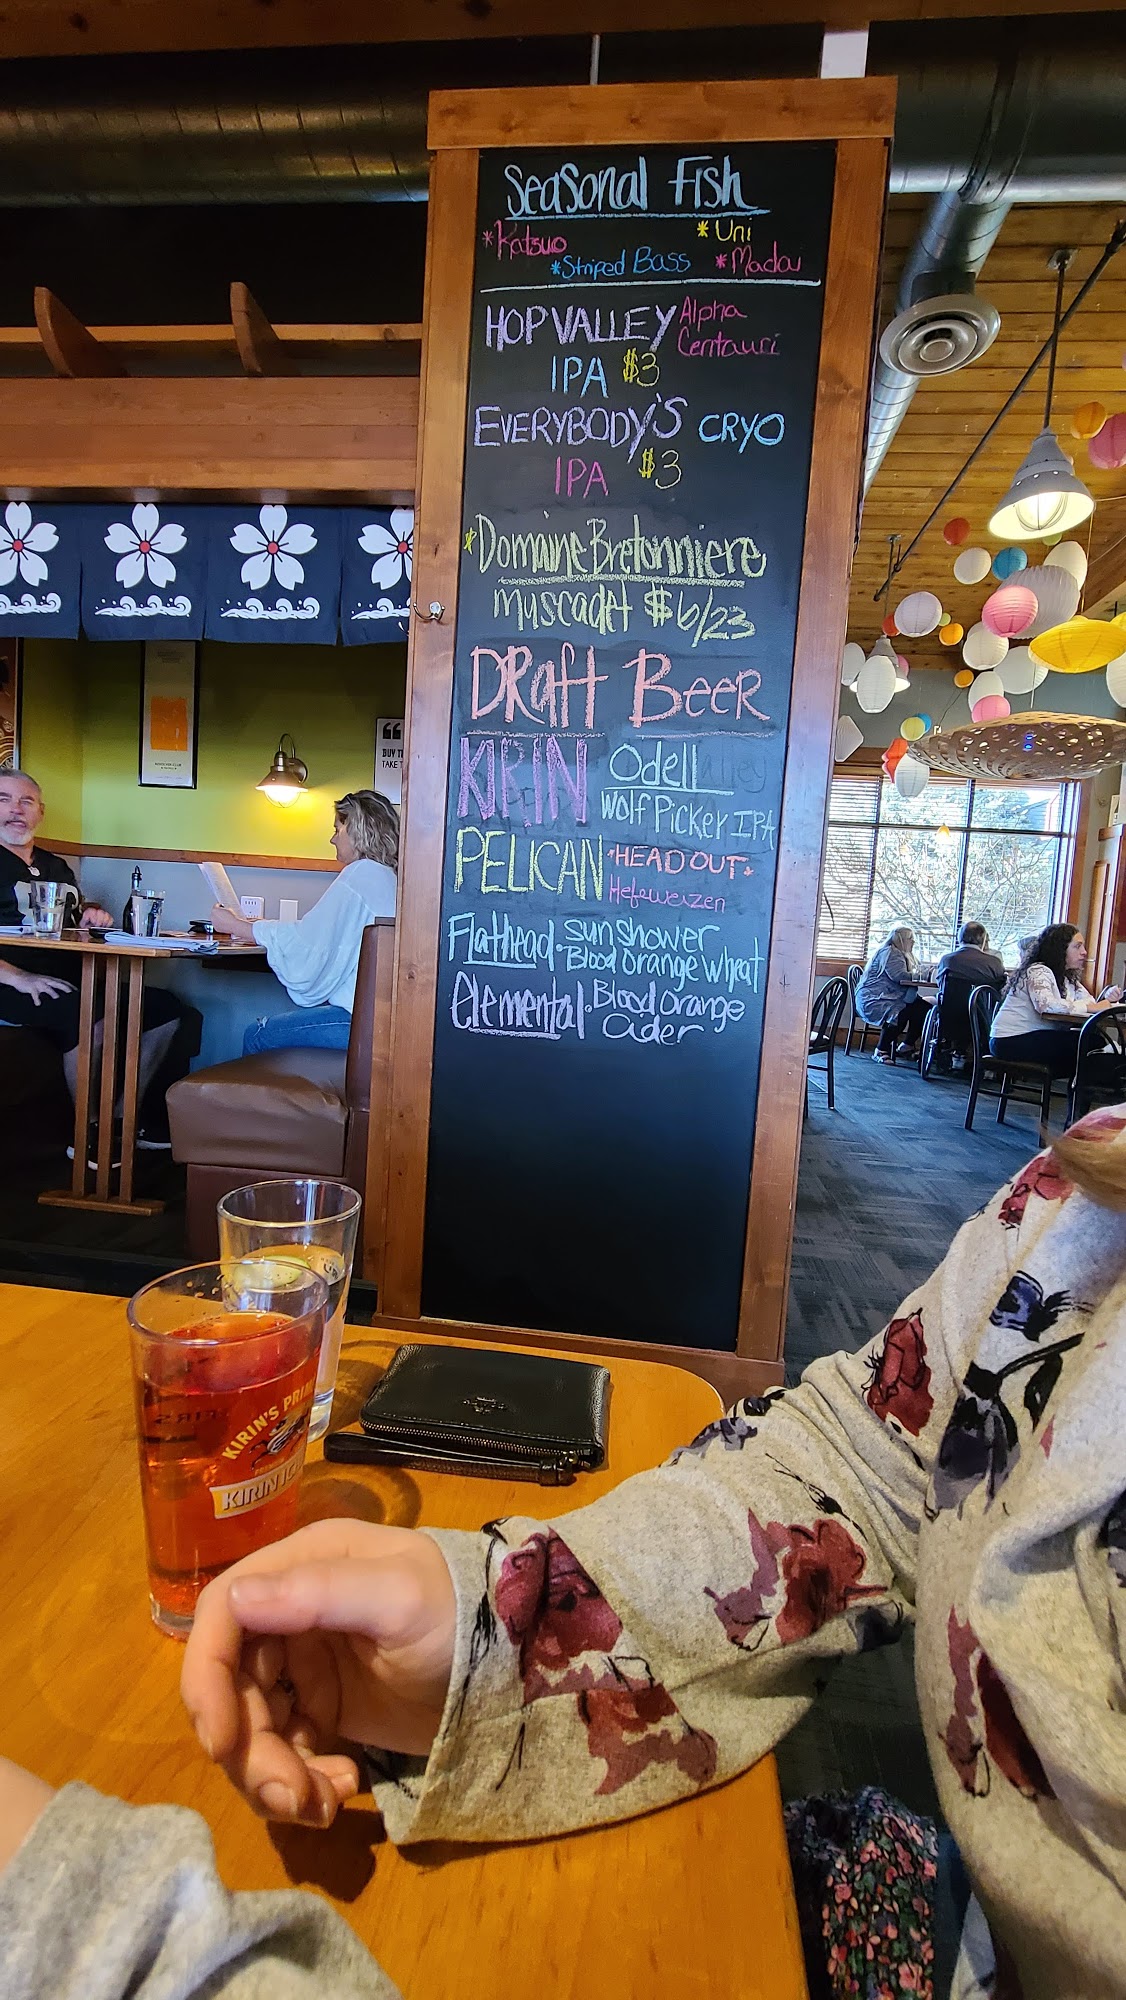 Seasonal Fish
*Katsuo *Uni
*Striped Bass *Madai
HOP VALLEY Alpha Centauri
IPA $3
EVERYBODY'S CRYO
IPA $3
*Domaine Bretonniere
Myscadet $6/23
DRaft BeeR
KIRIN Odell
Wolf Picker IPA
PELICAN *HEAD OUT*
Hefeweizen
Flathead • Sunshower
Blood Orange Wheat
Elemental • Blood Orange
Cider
BUY T
TAKE T
KIRIN'S PRI
KIRIN IC